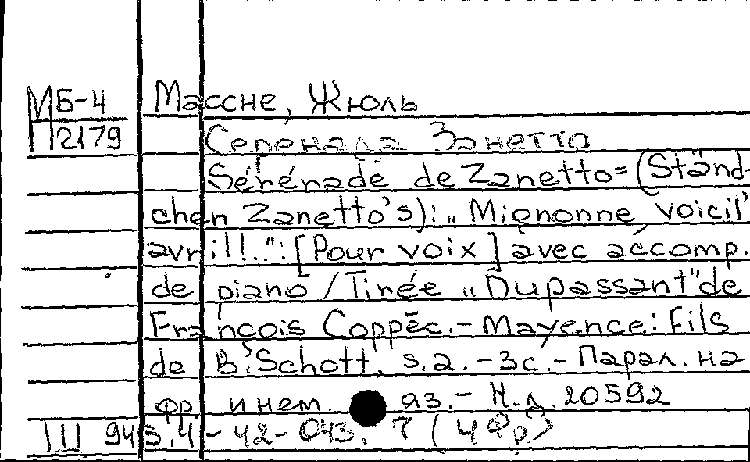 МБ-4 Массне, Жюль
П2179 Серенада Занетто
Sérénade de Zanetto=(Ständ-
chen Zanetto's): „Mignonne voicil'
avril!..": [Pour voix] avec accomp.
de piano / Tirée „Dupassant" de
François Coppéc. - Mayence: Fils
de B. Schott, s.a. - 3с. - Парал. на
фр. и нем. яз. - Н.д. 20592
Ш 943.4-42-043. 7 (4Фр)